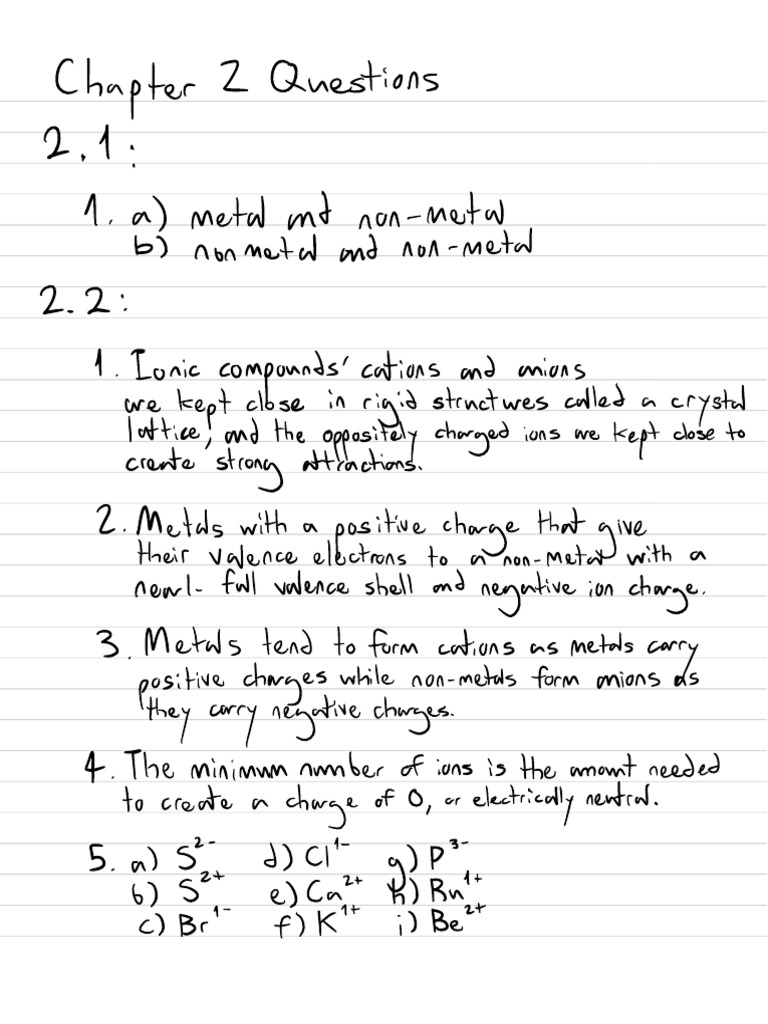 Chapter 2 Questions
2.1:
1. a) metal and non-metal
b) nonmetal and non-metal
2.2:
1. Ionic compounds' cations and anions
are kept close in rigid structures called a crystal
lattice, and the oppositely charged ions are kept close to
create strong attractions.
2. Metals with a positive charge that give
their valence electrons to a non-metal with a
nearl- full valence shell and negative ion charge.
3. Metals tend to form cations as metals carry
positive charges while non-metals form anions as
they carry negative charges.
4. The minimum number of ions is the amount needed
to create a charge of 0, or electrically neutral.
5. a) S²⁻ d) Cl¹⁻ g) P³⁻
b) S²⁺ e) Ca²⁺ h) Rn¹⁺
c) Br¹⁻ f) K¹⁺ i) Be²⁺